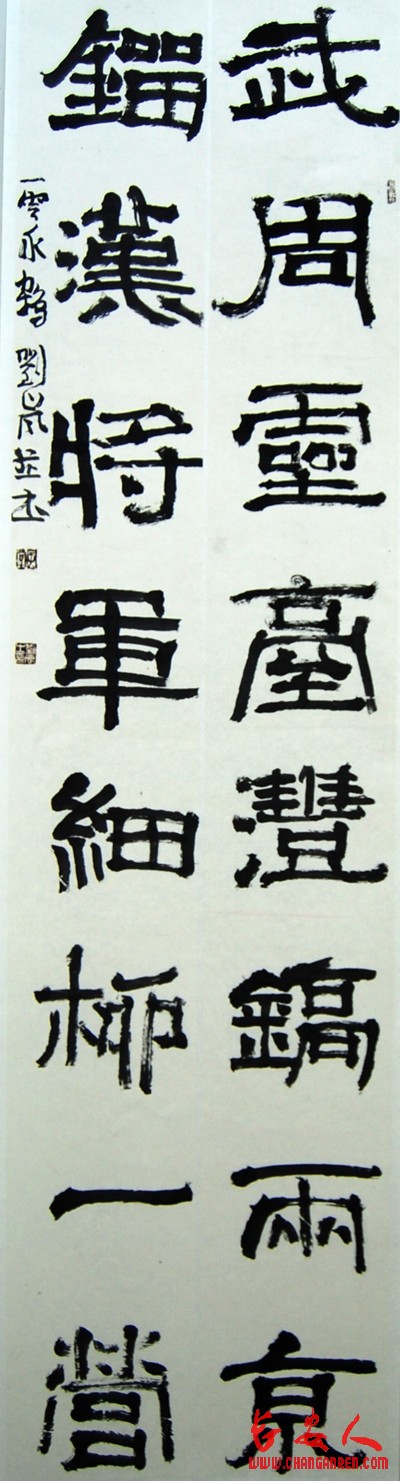 武周靈臺灃鎬兩京
鎦漢將軍細柳一營
一雲永 劉
长安人
WWW.CHANGANREN.COM